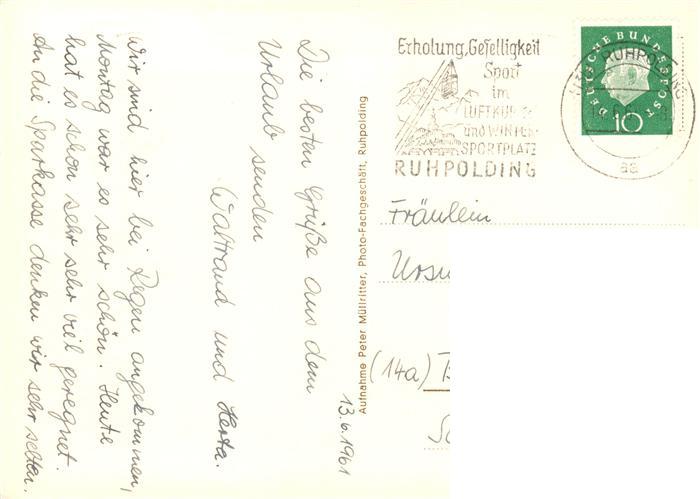 Die besten Grüße aus dem
Urlaub senden
Waltraud und Herta.
Wir sind hier bei Regen angekommen,
Montag war es sehr schön. Heute
hat es schon sehr sehr viel geregnet.
An die Sparkasse denken wir sehr selten.
13.6.1961
Aufnahme Peter Müllritter, Photo-Fachgeschäft, Ruhpolding
Erholung, Geselligkeit
Sport
im
LUFTKUR
und WINTER
SPORTPLATZ
RUHPOLDING
RUHPOLDING
aa
DEUTSCHE BUNDESPOST
10
Fräulein
(14a)